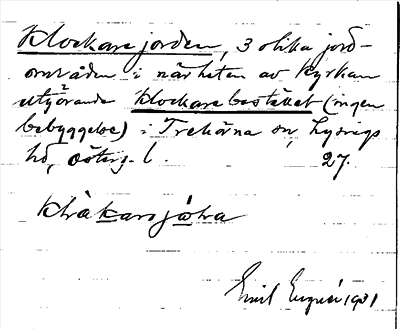 Klockarejorden, 3 olika jord-
områden i närheten av kyrkan
utgörande Klockarebostället (ingen
bebyggelse) i Trehörna sn, Lysings
hd, Österg. l. 27.
klråkarsjøra
Emil 1931